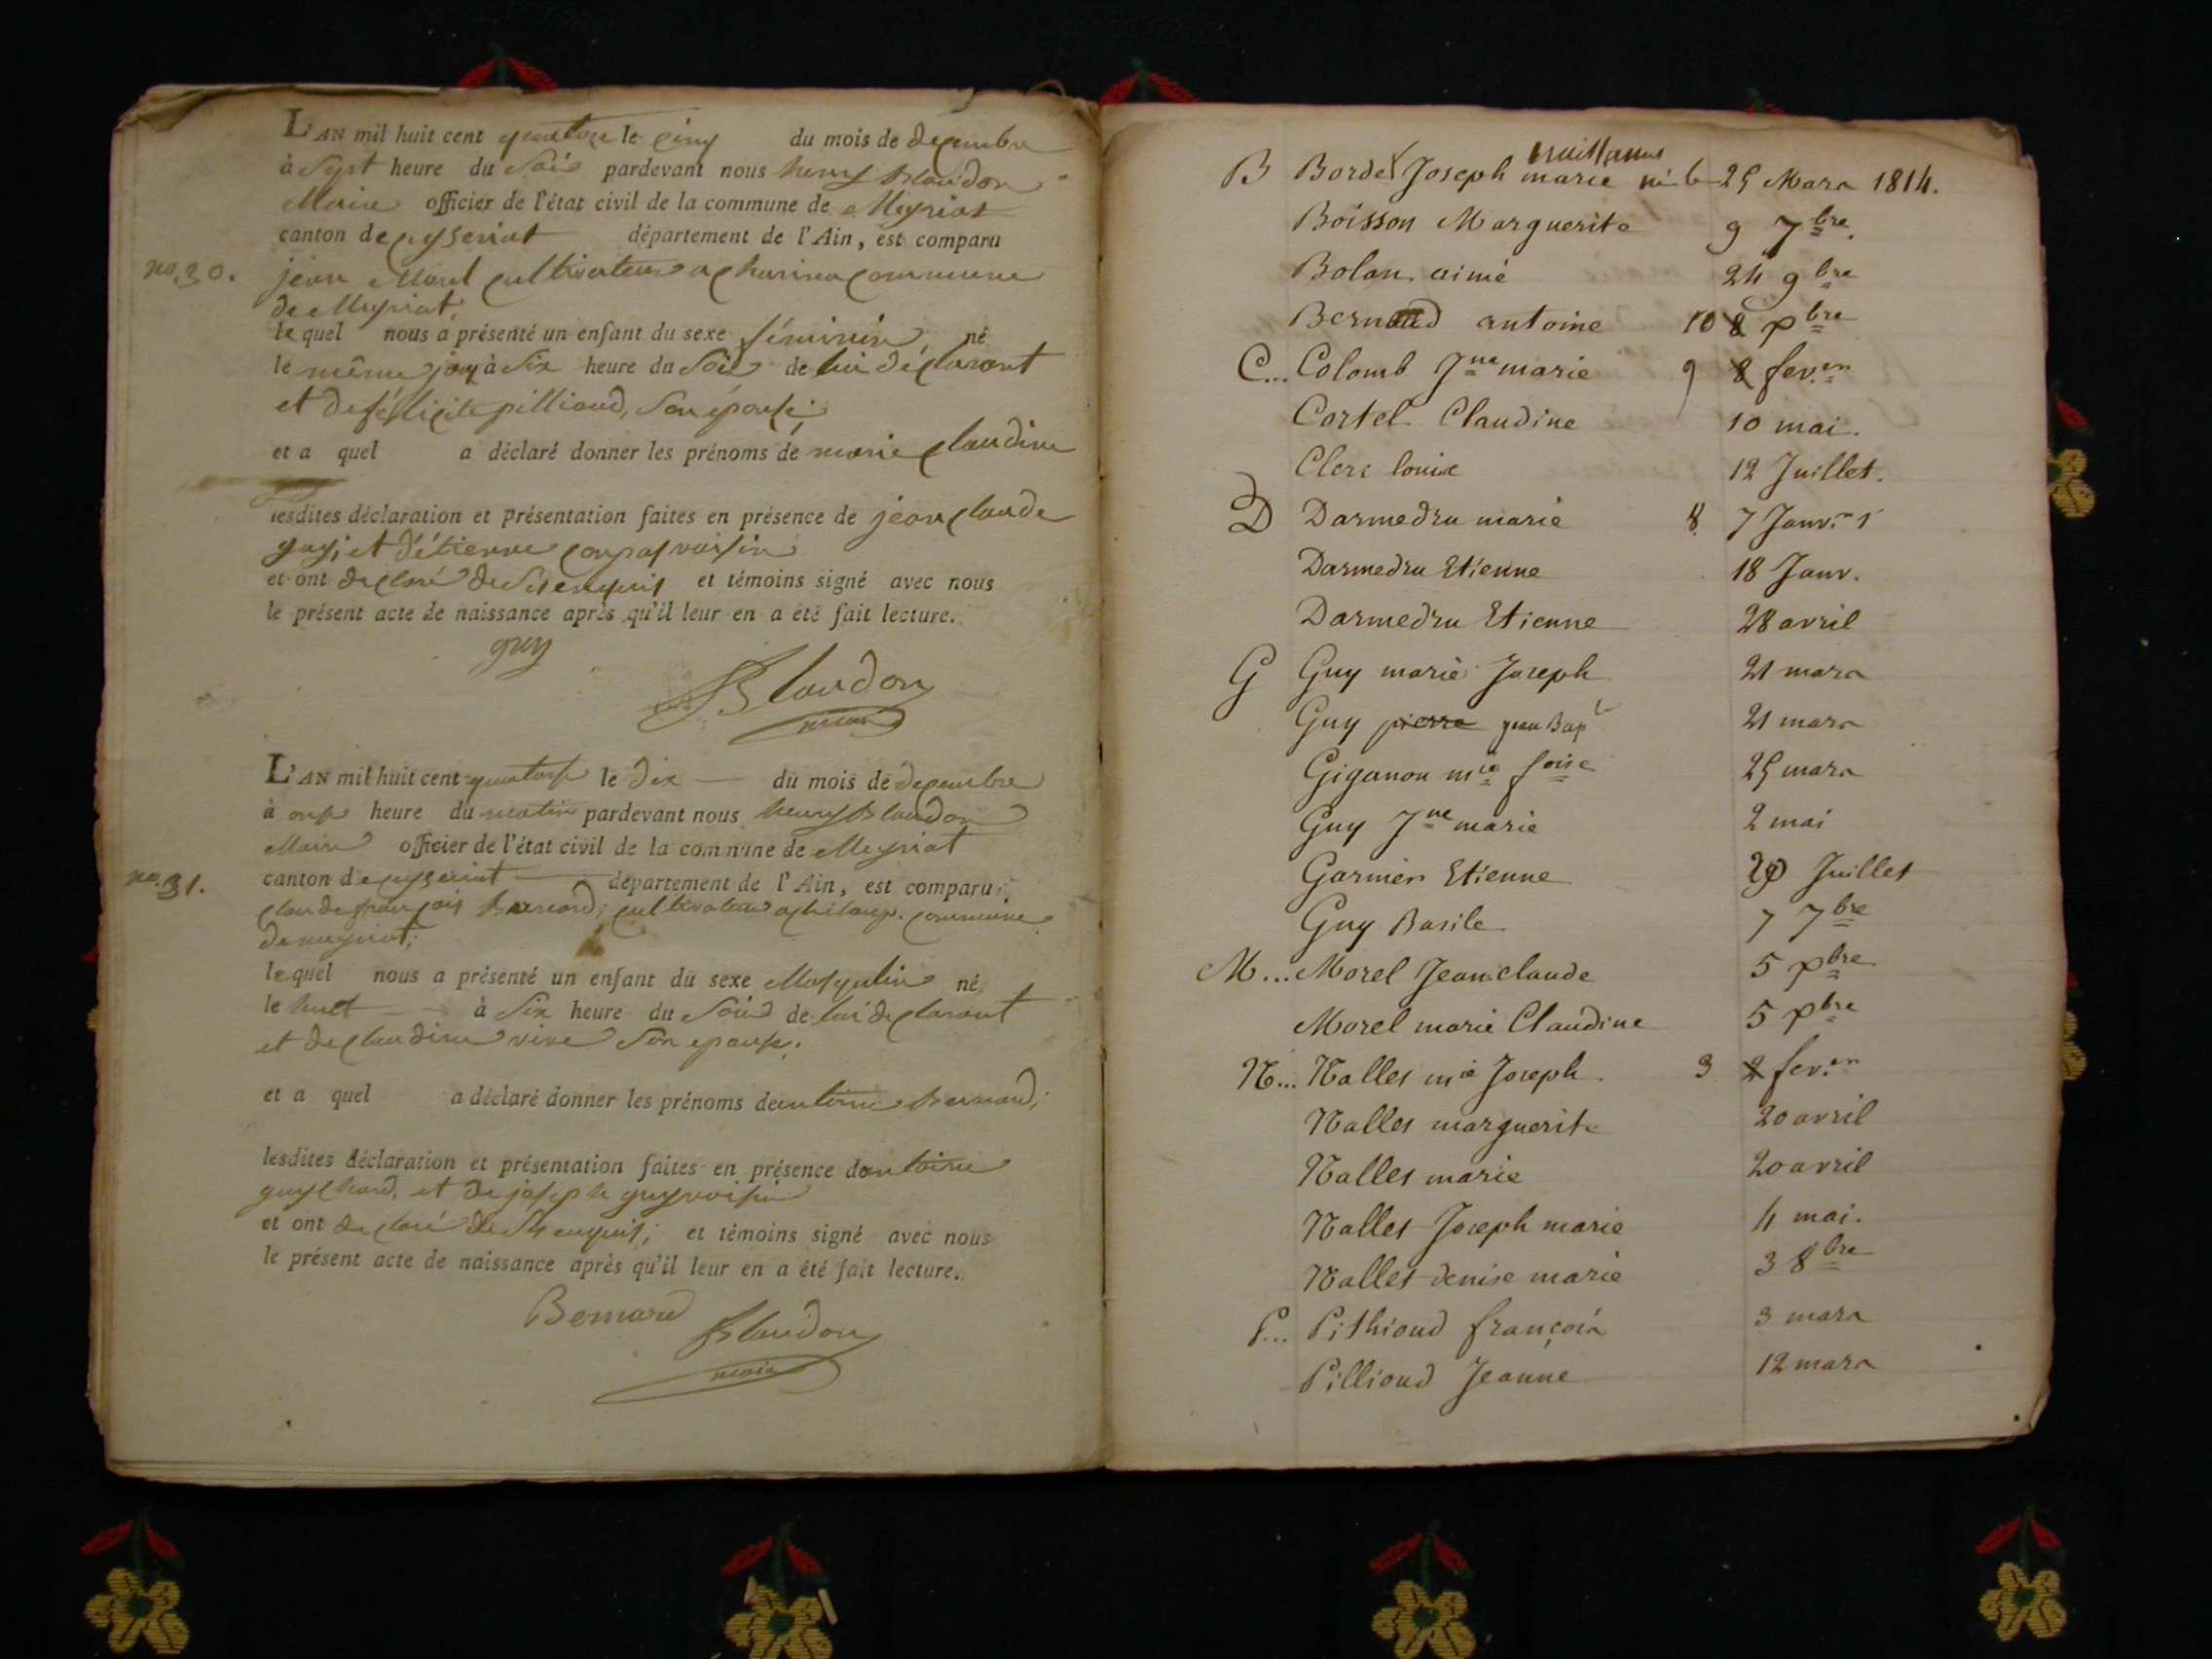 L'AN mil huit cent quatorze le cinq du mois de decembre
à sept heure du soir pardevant nous henry Blaudon
Maire officier de l'état civil de la commune de Meyriat
canton de ceyseriat département de l'Ain, est comparu
no. 30. jean Morel cultivateur a charina commune
de Meyriat;
lequel nous a présenté un enfant du sexe féminin, né
le même jour à six heure du soir de lui déclarant
et de félicité pillioud, son épouse;
et a quel a déclaré donner les prénoms de marie claudine
lesdites déclaration et présentation faites en présence de jean claude
guy; et d'étienne voisin
et ont declaré de s'ci enquis et témoins signé avec nous
le présent acte de naissance après qu'il leur en a été fait lecture.
guy
Blaudon
maire
L'AN mil huit cent quatorse le dix du mois de decembre
à onse heure du matin pardevant nous henry Blaudon
Maire officier de l'état civil de la commune de Meyriat
no. 31. canton de ceyseriat département de l'Ain, est comparu
claude françois Bernard; cultivateur commune
de meyriat;
lequel nous a présenté un enfant du sexe Masqulin né
le huit à six heure du soir de lui déclarant
et de claudine vive son epouse;
et a quel a déclaré donner les prénoms de antoine Bernard;
lesdites déclaration et présentation faites en présence dantoine
guychard, et de joseph guy voisin
et ont declaré de s'ci enquis; et témoins signé avec nous
le présent acte de naissance après qu'il leur en a été fait lecture.
Bernard
Blaudon
maire
B Bordet Joseph marie né le 25 Mars 1814.
Boisson Marguerite 9 7bre.
Bolan aimé 24 9bre
Bernard antoine 10 8 xbre
C... Colomb Jne marie 9 8 fev.er
Cortel Claudine 10 mai.
Clerc louise 12 Juillet.
D Darmedru marie 8 7 Janv.er
Darmedru Etienne 18 Janv.
Darmedru Etienne 28 avril
G Guy marie Joseph 21 mars
Guy pierre jean Bapt 21 mars
Giganon mie foise 25 mars
Guy Jne marie 2 mai
Garnier Etienne 20 Juillet
Guy Basile 7 7bre
M... Morel Jean claude 5 xbre
Morel marie Claudine 5 xbre
N... Nallet mie Joseph 3 2 fev.er
Nallet marguerite 20 avril
Nallet marie 20 avril
Nallet Joseph marie 4 mai.
Nallet denise marie 3 8bre
P... Pithioud françois 3 mars
Pillioud Jeanne 12 mars